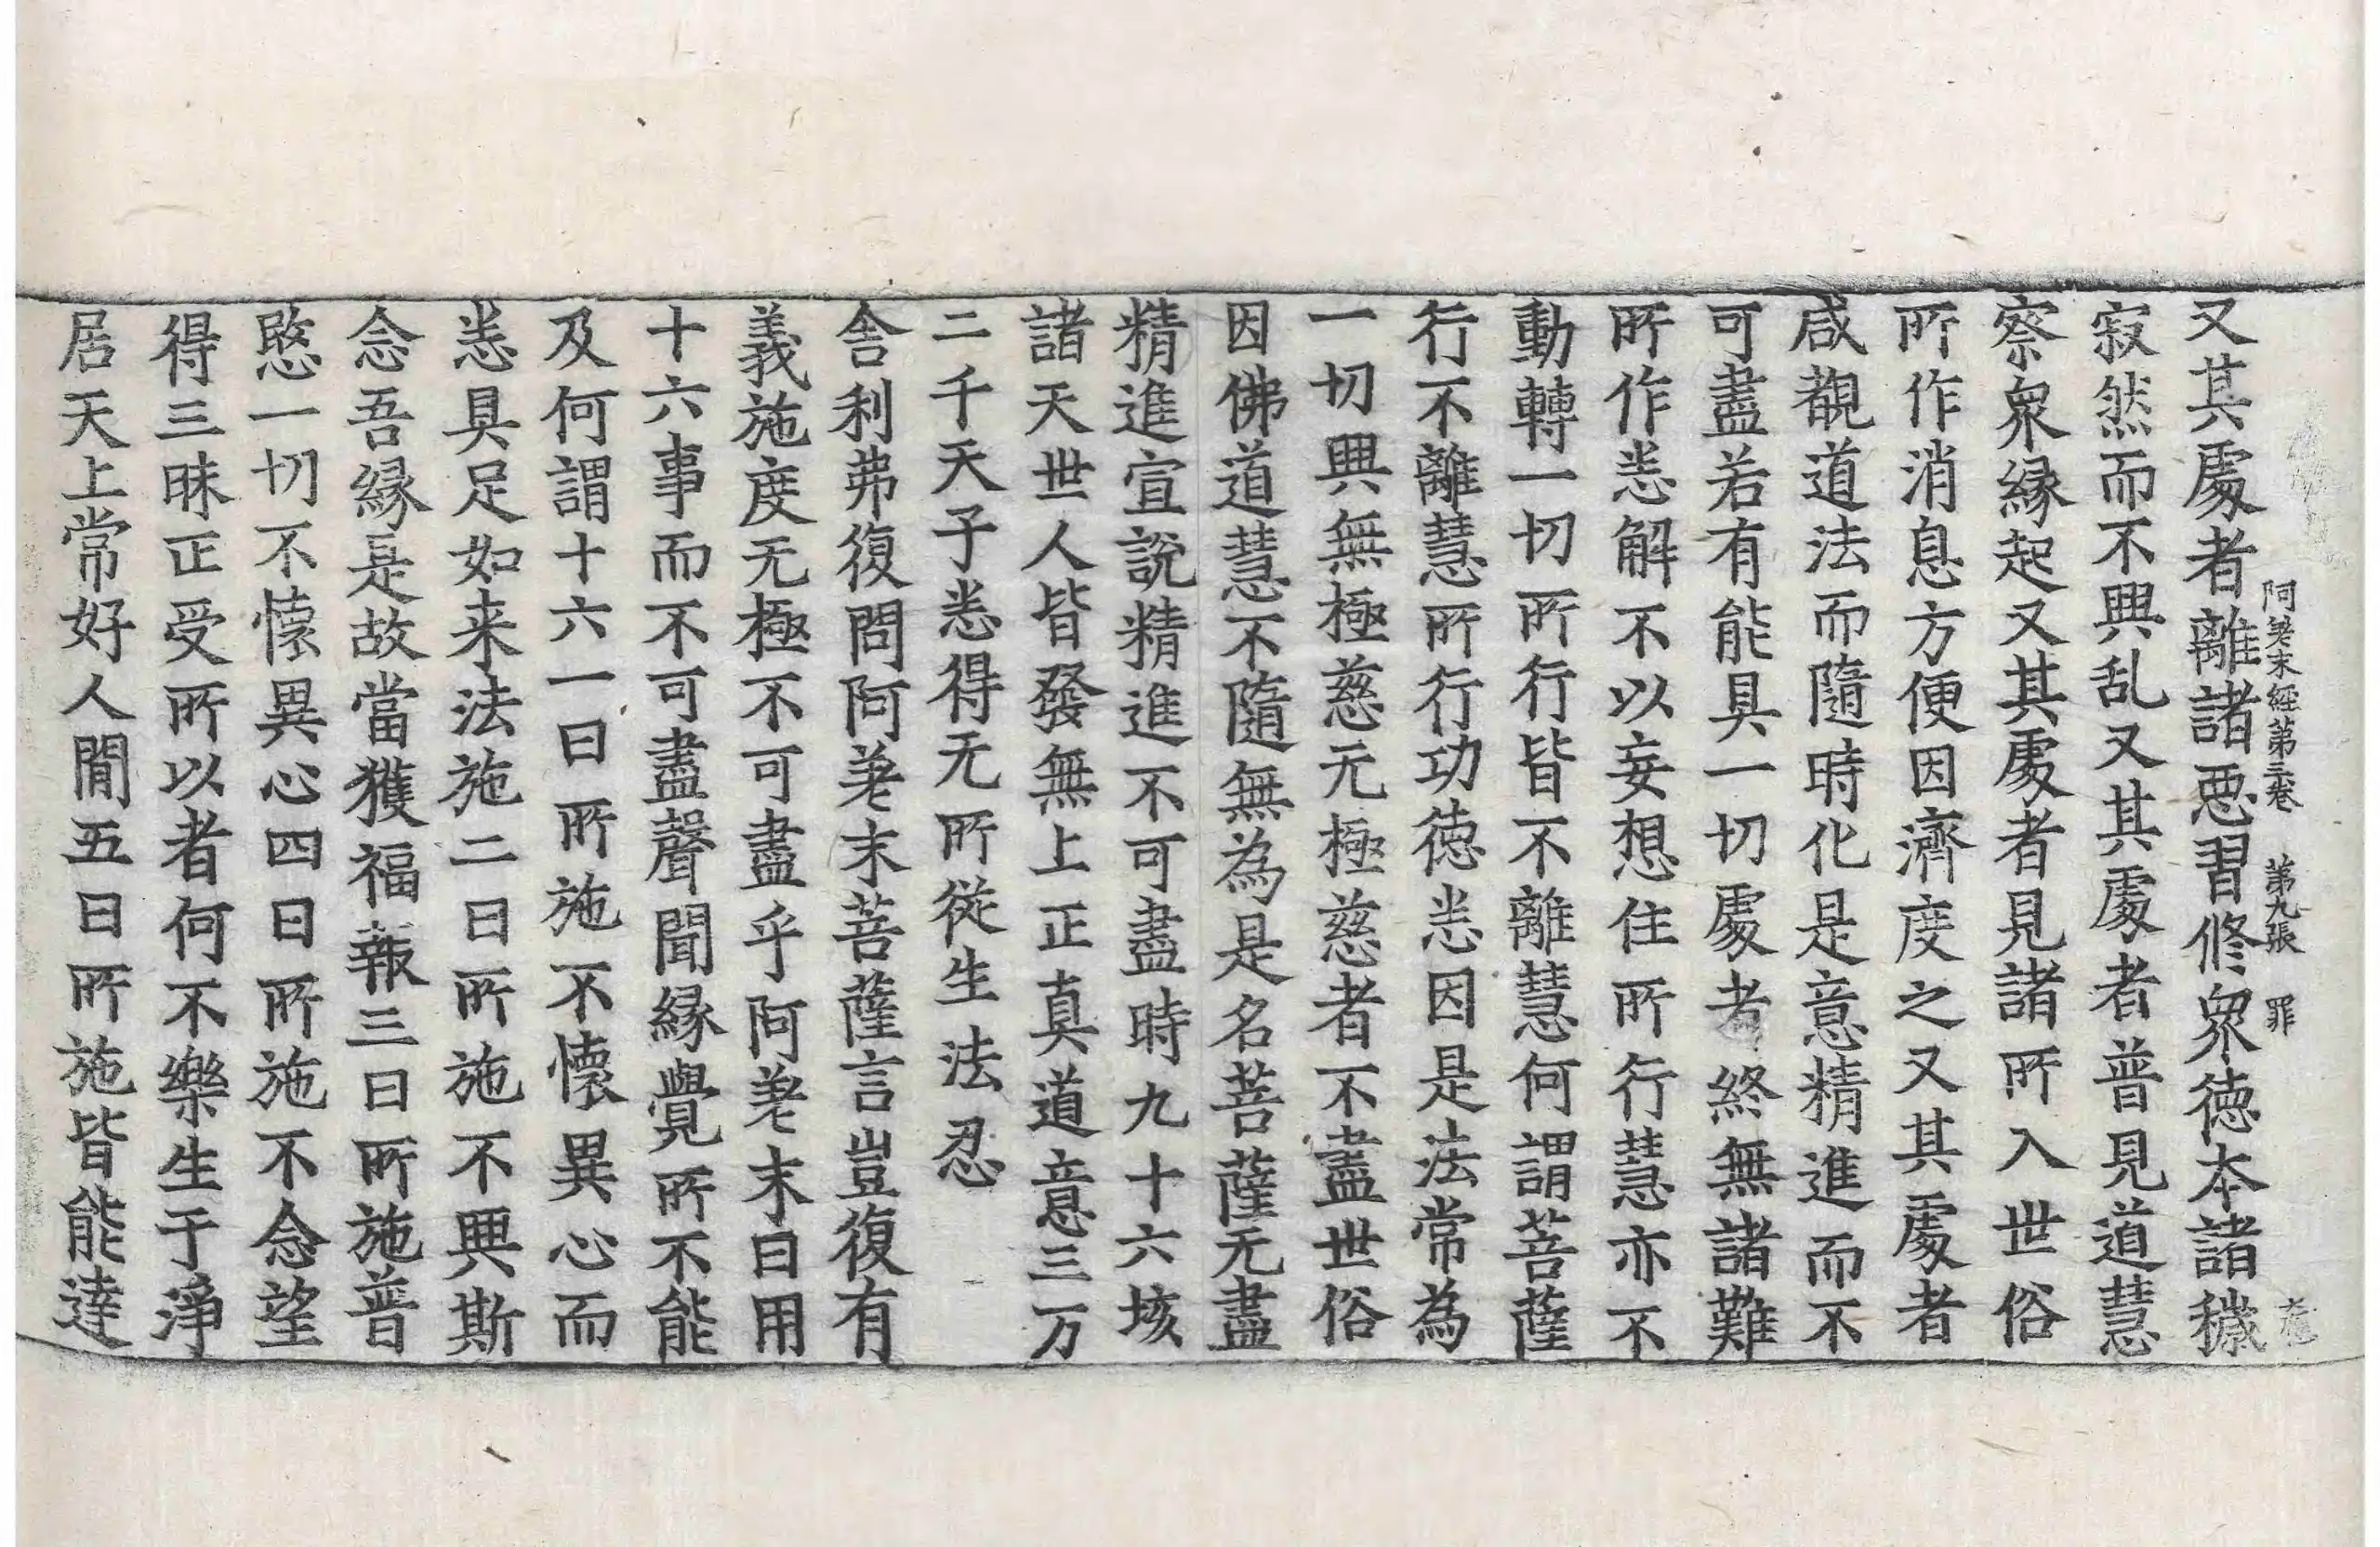 阿差末經第三卷 第九張 罪
又其處者離諸惡習修衆徳本諸穢
寂然而不興乱又其處者普見道慧
察衆縁起又其處者見諸所入世俗
所作消息方便因濟度之又其處者
咸覩道法而隨時化是意精進而不
可盡若有能具一切處者終無諸難
所作悉解不以妄想住所行慧亦不
動轉一切所行皆不離慧何謂菩薩
行不離慧所行功徳悉因是法常為
一切興無極慈无極慈者不盡世俗
因佛道慧不隨無為是名菩薩无盡
精進宣說精進不可盡時九十六垓
諸天世人皆發無上正真道意三万
二千天子悉得无所從生法忍
舎利弗復問阿差末菩薩言豈復有
義施度无極不可盡乎阿差末曰用
十六事而不可盡聲聞縁覺所不能
及何謂十六一曰所施不懷異心而
悉具足如来法施二曰所施不興斯
念吾縁是故當獲福報三曰所施普
愍一切不懷異心四曰所施不念望
得三昧正受所以者何不樂生于淨
居天上常好人閒五曰所施皆能達